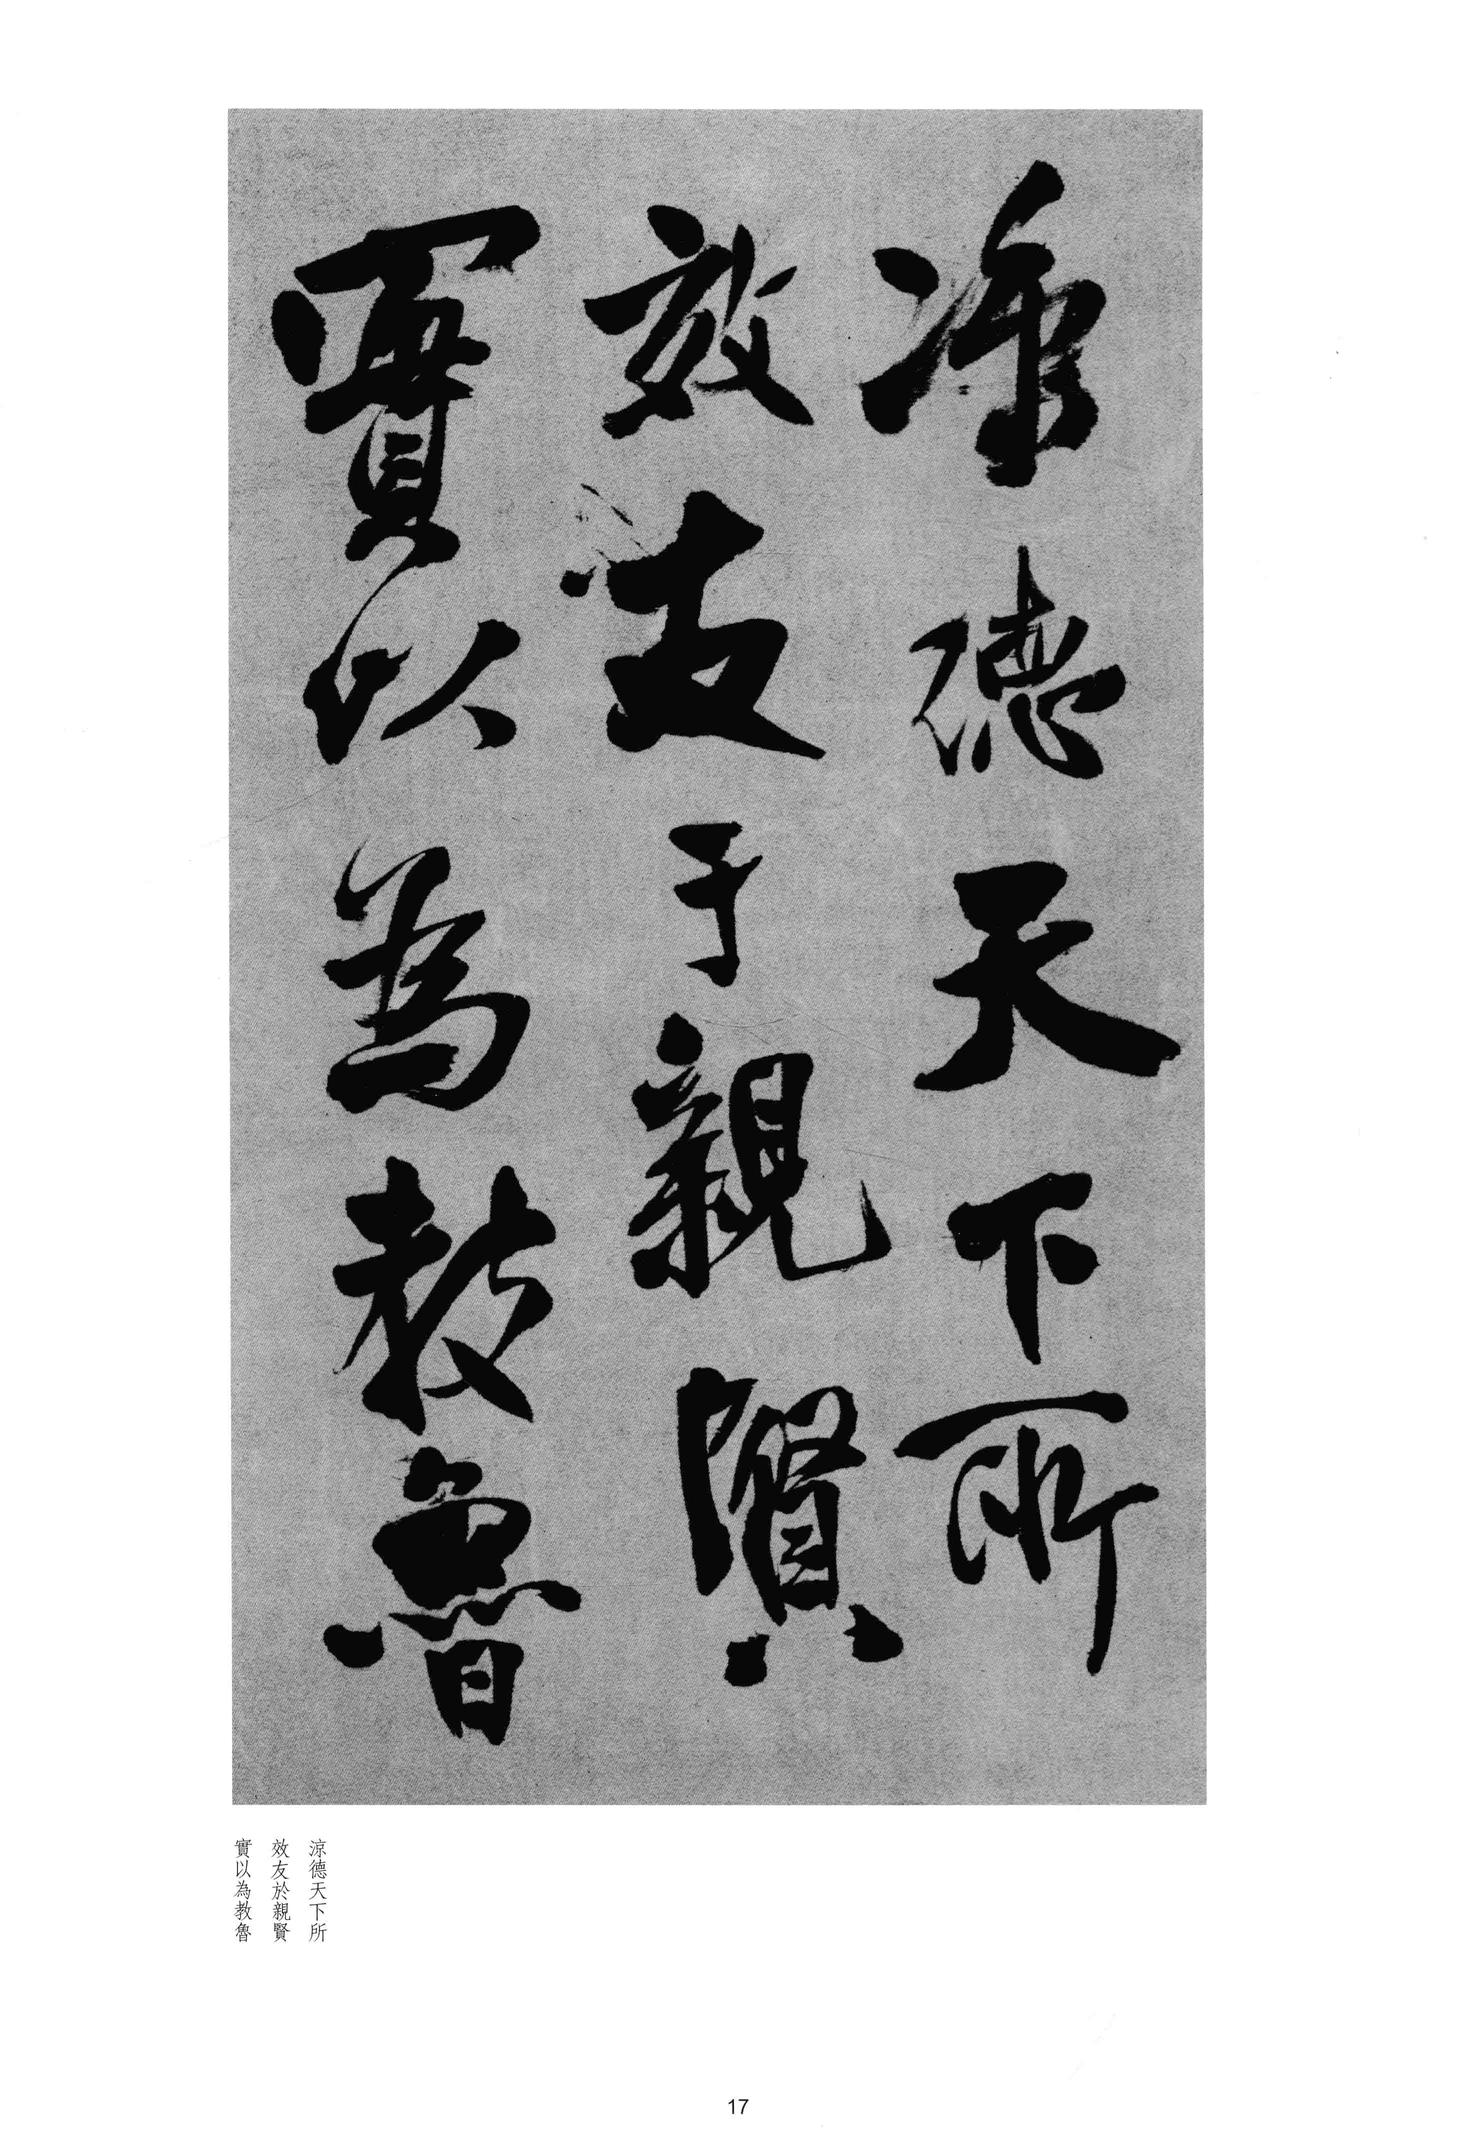 涼德天下所
效友于親賢
實以為教魯
涼德天下所
效友於親賢
實以為教魯
17